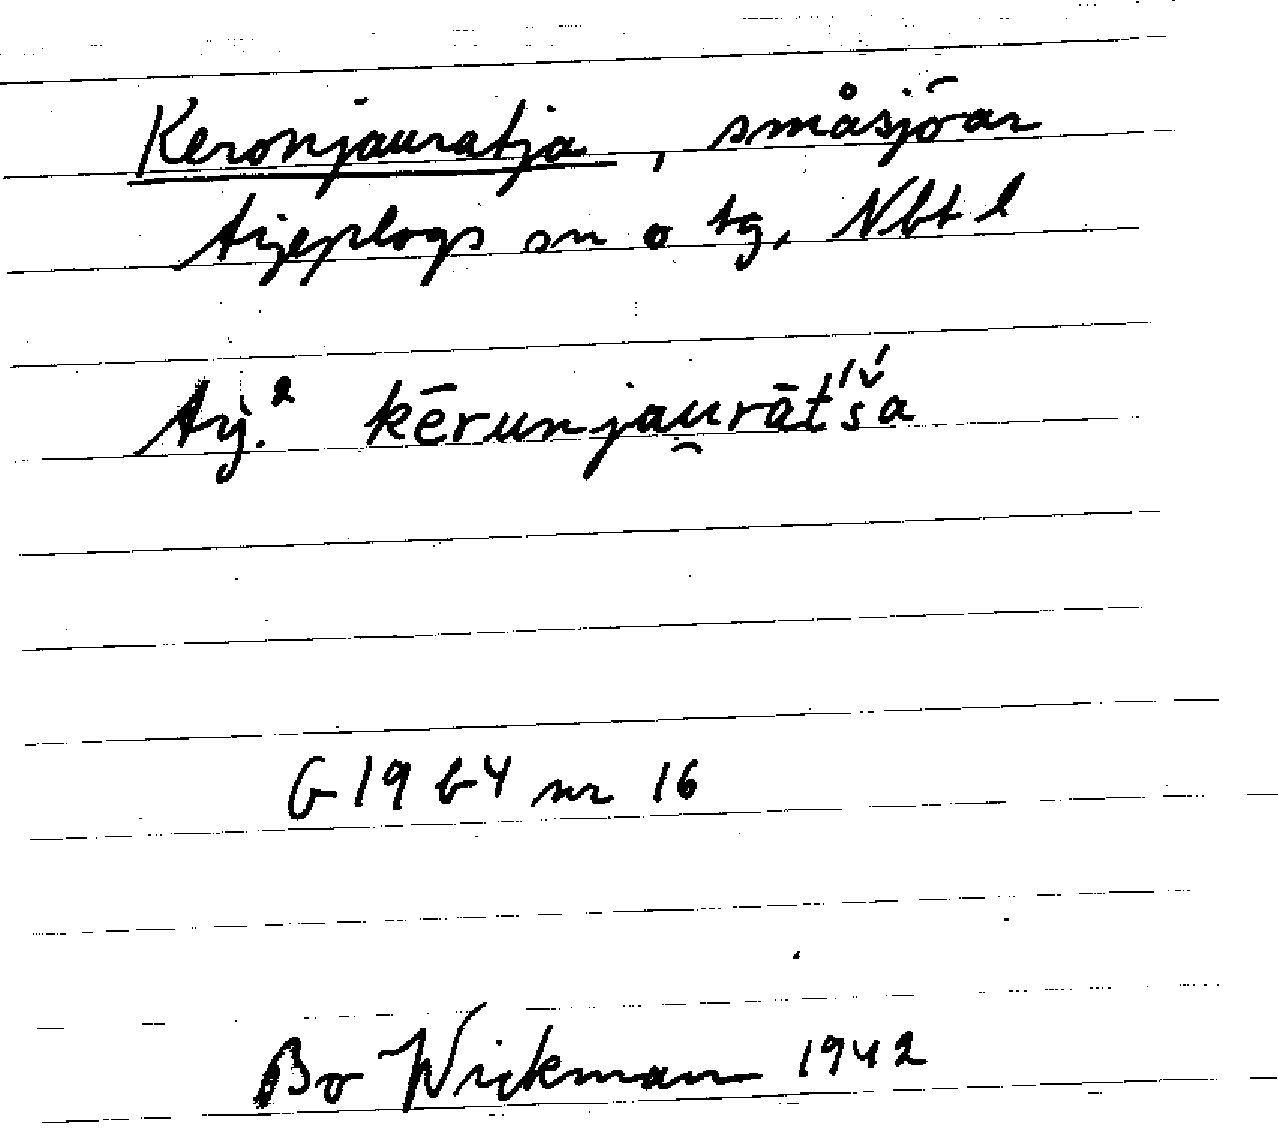 Keronjauratja, småsjöar
Arjeplogs sn o tg, Nbt l
Arj.² kērunjau̯rāt́ś̌a
G 19 b4 nr 16
Bo Wickman 1942